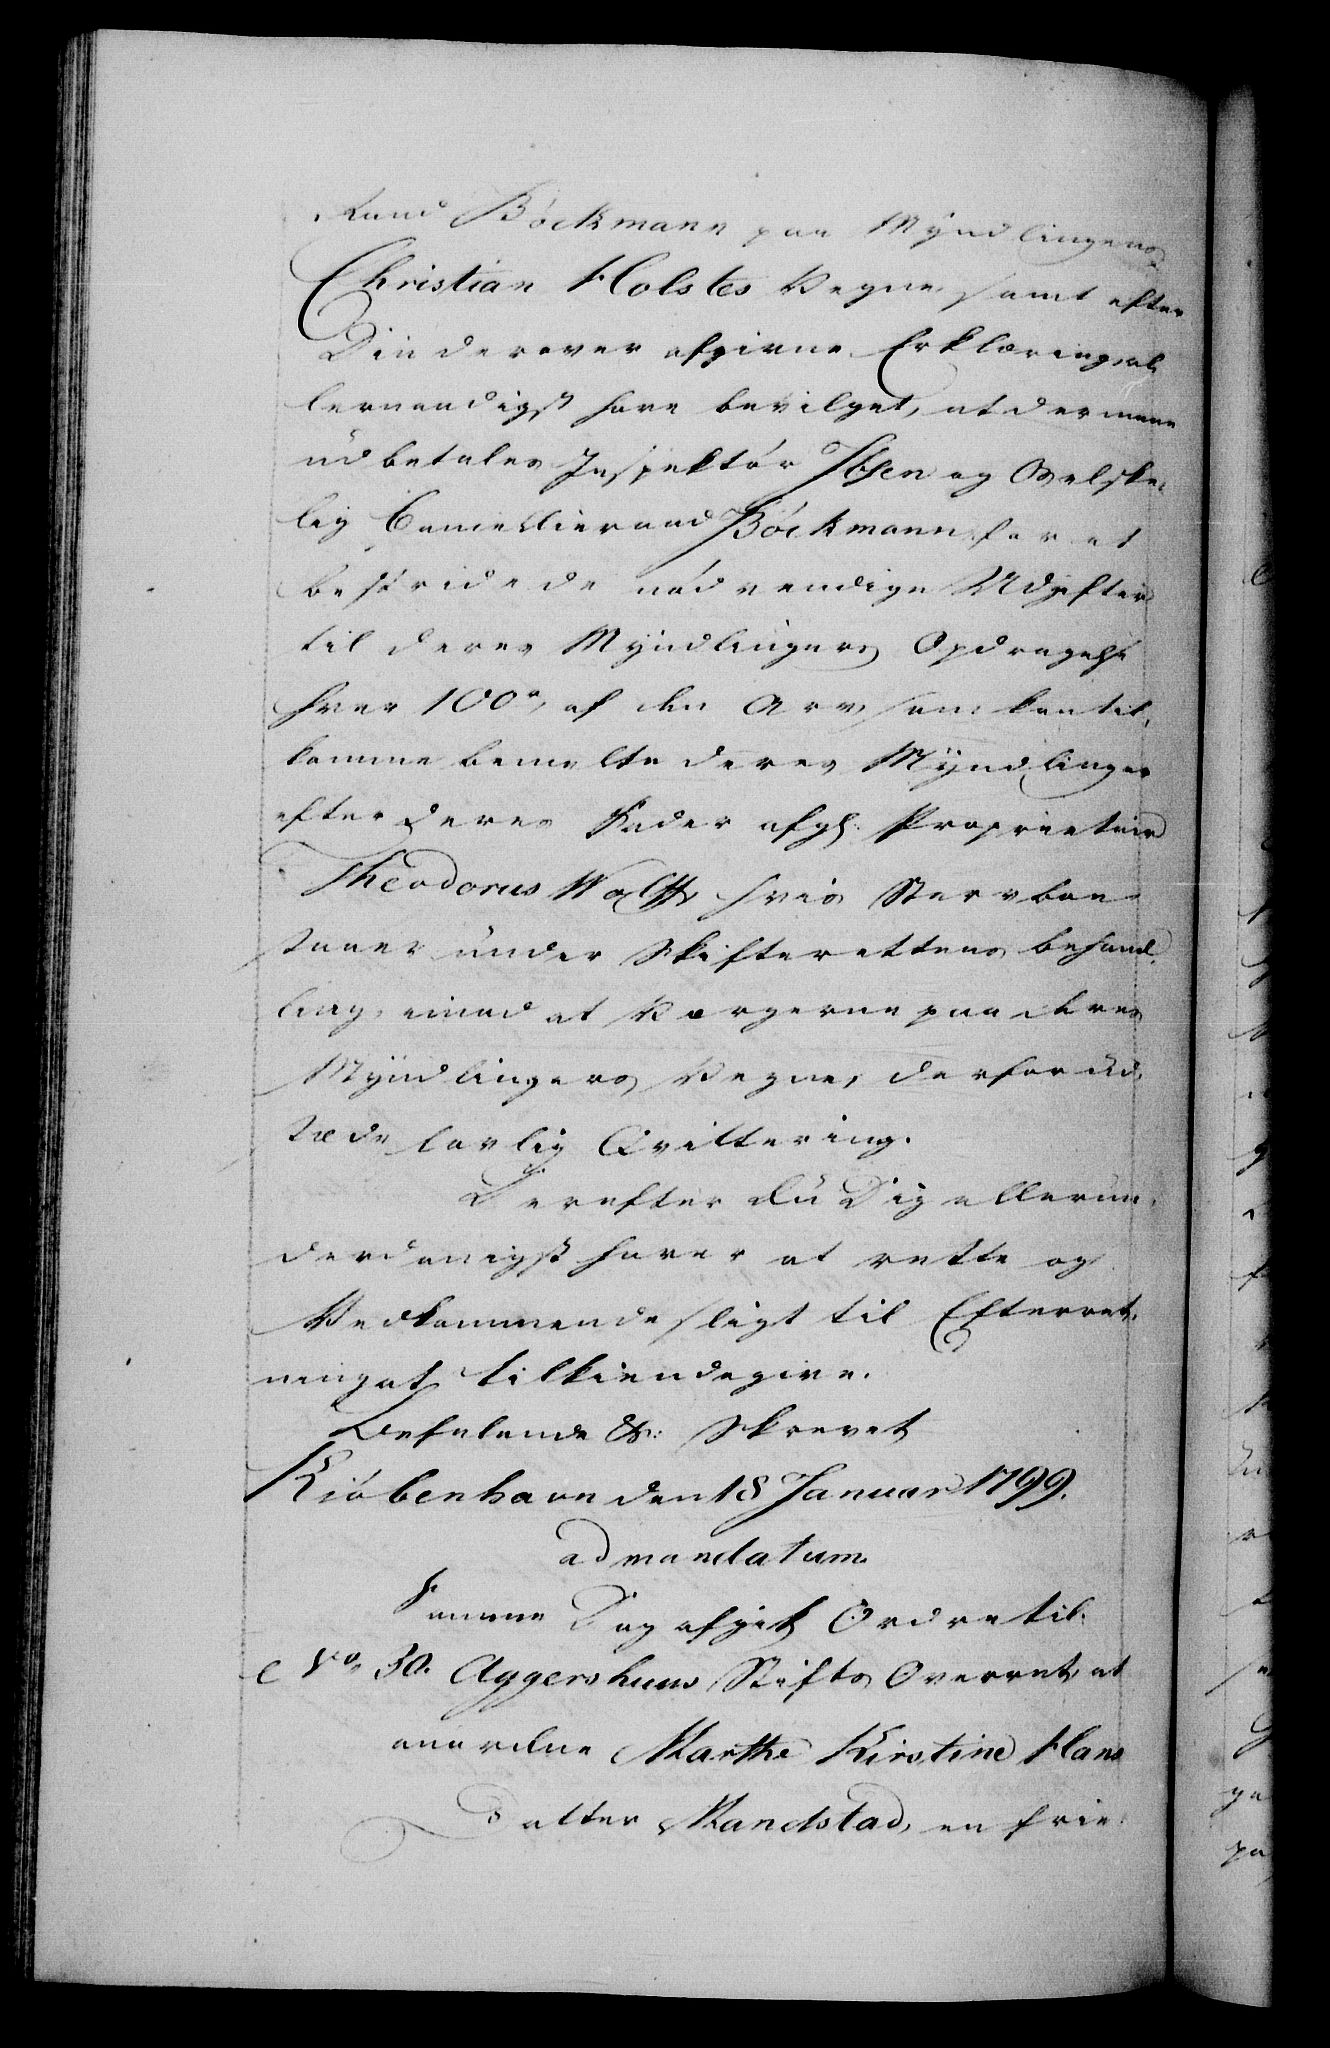 raad Böckmann paa Myndlingens
Christian Holstes Vegne, samt efter
Din derover afgivne Erklæring, al¬
lernaadigst have bevilget, at der maae
udbetales Inspektör Ibsen og Velske¬
lig Cancellieraad Böckmann for at
bestride de nödvendige Udgifter
til deres Myndlingers Opdragelse
hver 100 r, af den Arv, som kan til¬
komme bemelte deres Myndlinger
efter deres Fader afg: Proprietair
Theodorus Wolff, hvis Sterrboe
staaer under Skifterettens behand¬
ling, imod at Værgerne paa deres
Myndlingers Vegne, derfor ud¬
stæde lovlig Qvittering.
Derefter du Dig allerun¬
derdanigst haver at rette og
Vedkommende sligt til Efterret¬
ning at tilkiendegive.
Befalende &: Skrevet
Kiöbenhavn den 18 Januar 1799.
ad mandatum.
Samme Dag afgik Ordre til
No 30. Aggershuus Stifts Overret, at
anordne Marthe Kirstine Hans
Datter Mandstad, en frie